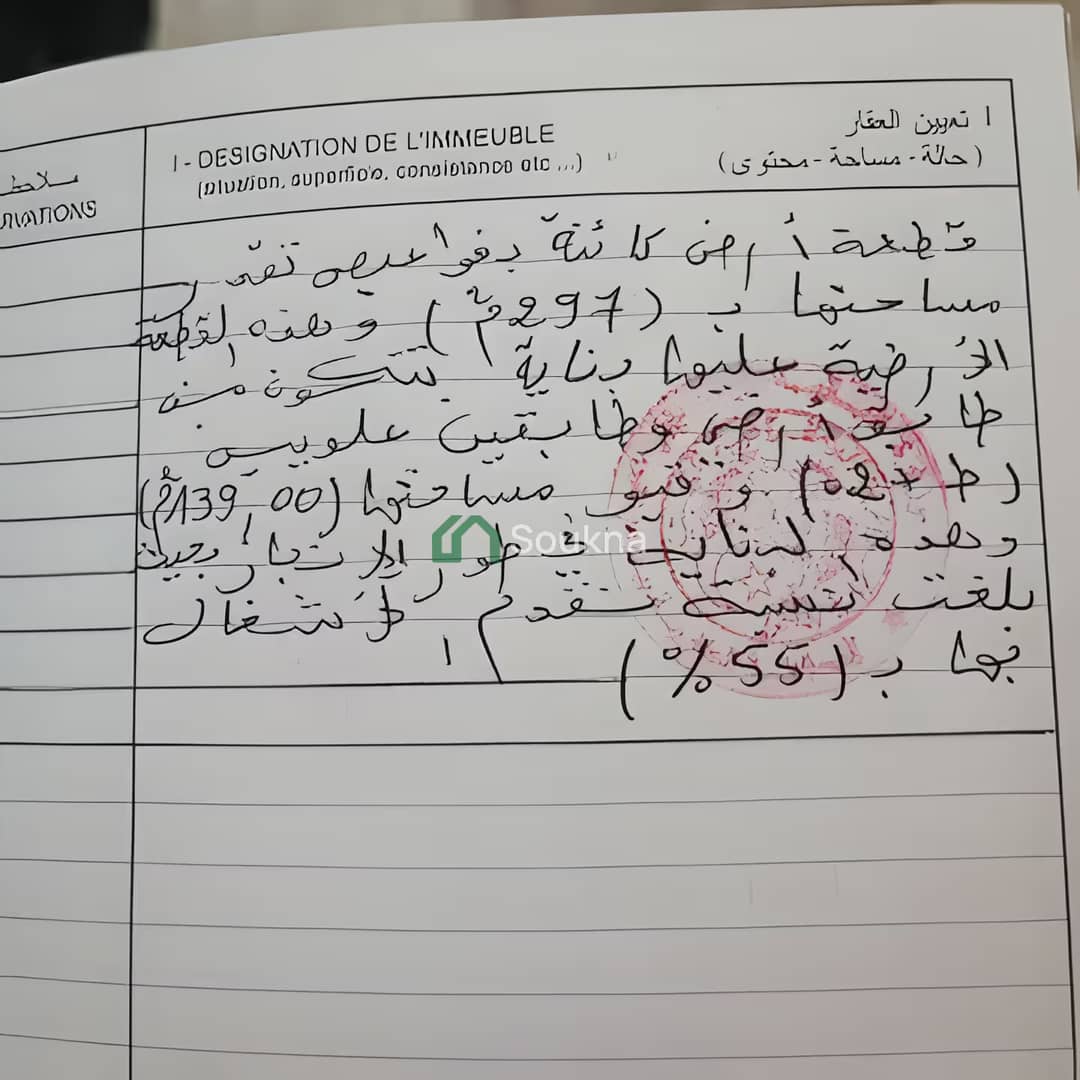 ملاحظ
RVATIONS
I - DESIGNATION DE L'IMMEUBLE
I تعيين العقار
(حالة - مساحة - محتوى)
قطعة أرض كائنة بفوا عيص تقدر
مساحتها ب (297م2) وهذه القطعة
الأرضية عليها بناية تتكون من
طابق أرضي وطابقين علويين
(ط + 02) و مساحتها (139,00م2)
وهذه البناية في طور الإنجاز بحيث
بلغت نسبة تقدم الأشغال
بها ب (55 %)
Soukna